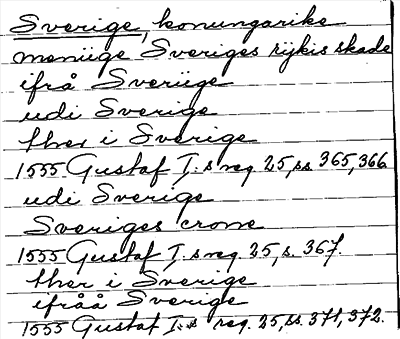 Sverige, konungarike
meniige Sveriges rijkis skade
ifrå Sveriige
udi Sverige
ther i Sverige
1555 Gustaf I:s reg. 25, ss. 365, 366.
udi Sverige
Sveriges crone
1555 Gustaf I:s reg. 25, s. 367.
ther i Sverige
ifråå Sverige
1555 Gustaf I:s reg. 25, ss. 371, 372.